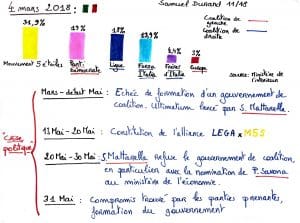 4 mars 2018 :
Samuel Durand 11/18
Coalition de gauche
Coalition de droite
31,9%
19%
18%
13,9%
4,4%
3%
Mouvement 5 étoiles
Parti Démocrate
Ligue
Forza Italia
Frères d'Italie
Europa
Source: Ministère de l'intérieur
"CRISE politique"
Mars - début Mai : Échec de formation d'un gouvernement de
coalition. Ultimatum lancé par S. Mattarella.
13 Mai - 20 Mai : Constitution de l'alliance LEGA x M5S
20 Mai - 30 Mai : S. Mattarella refuse le gouvernement de coalition,
en particulier avec la nomination de P. Savona
au ministère de l'économie.
31 Mai : Compromis trouvé par les parties prenantes,
formation du gouvernement